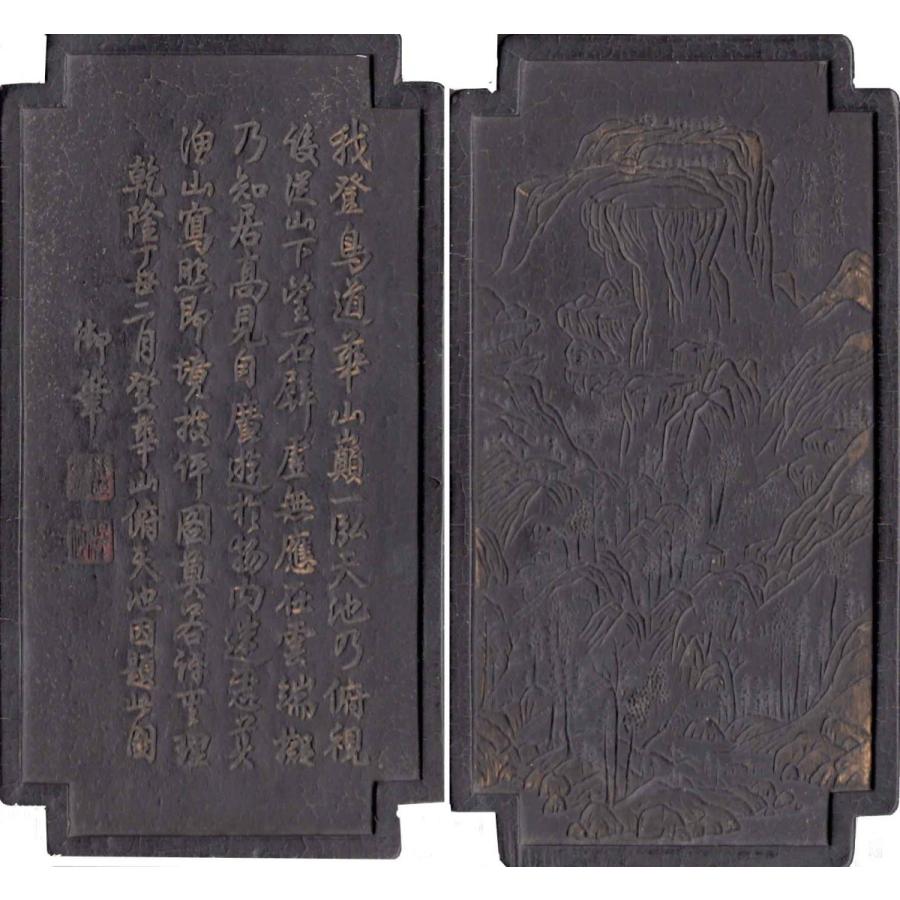 我登鳥道華山巔一泓天池乃俯視
從山下望石屏虛無應在雲端擬
乃知居高見自廣遊於物內迷
山寫照即境披評圖真各詩理
乾隆丁丑二月登華山俯天池因題此圖
御筆